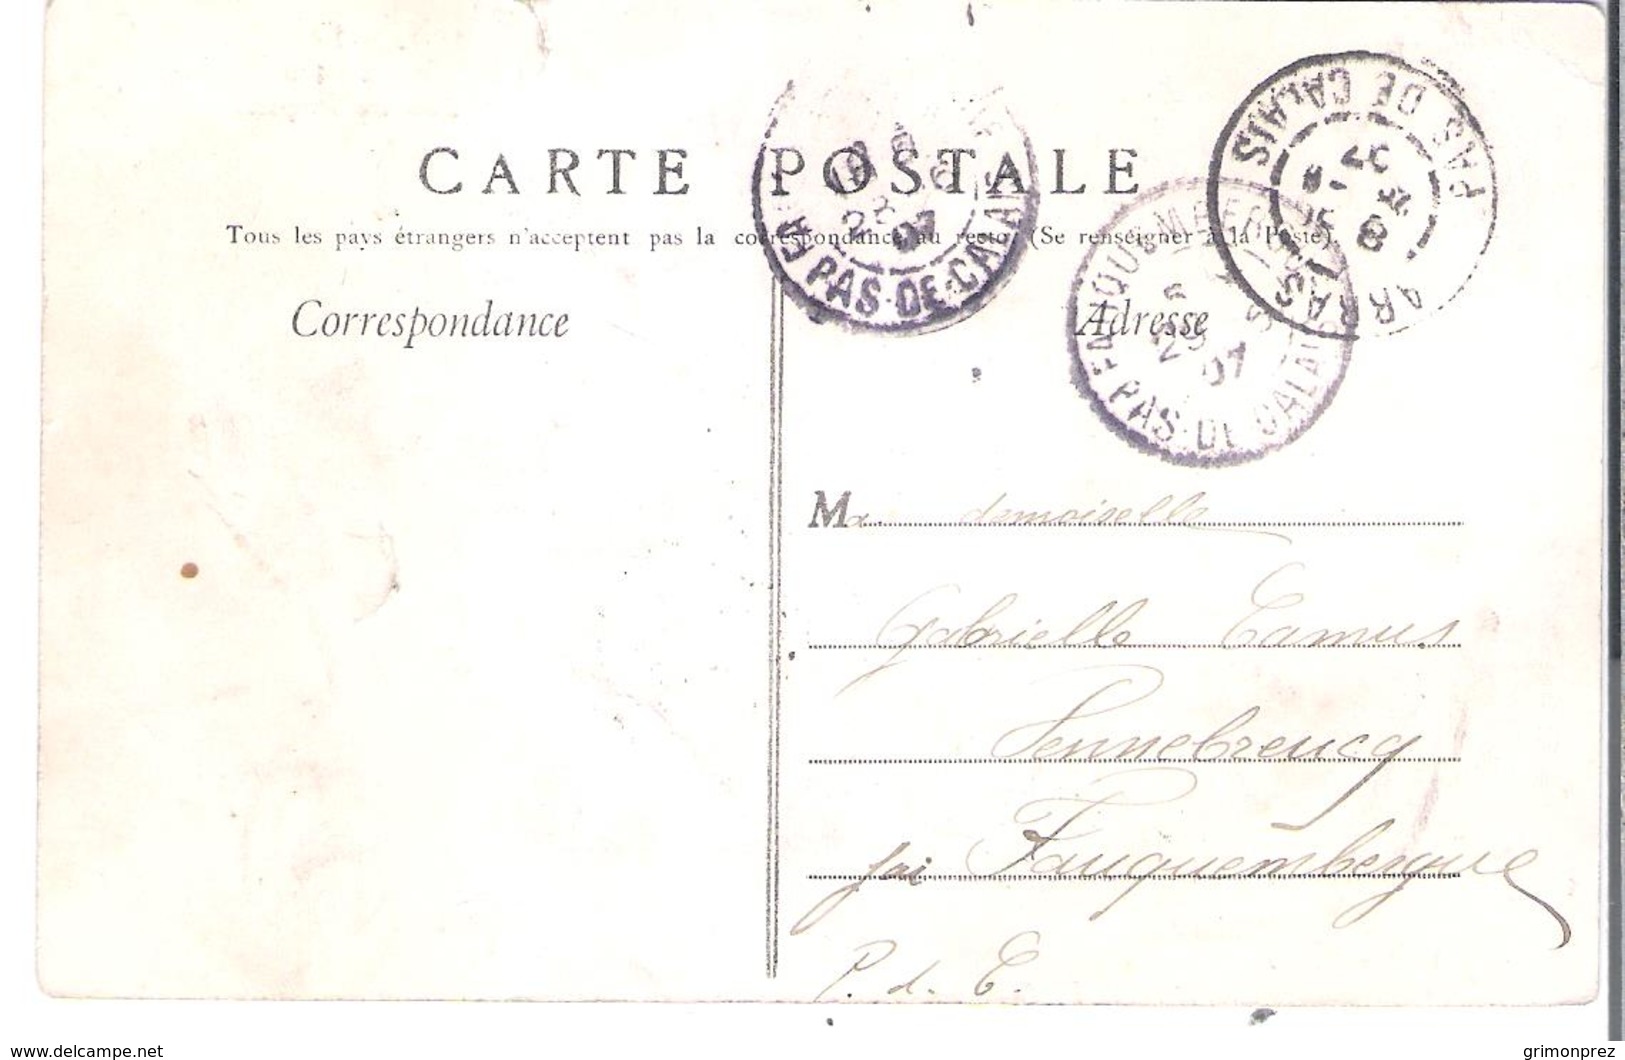 CARTE POSTALE
Tous les pays étrangers n'acceptent pas la correspondance au recto. (Se renseigner à la Poste).
Correspondance
Adresse
PAS-DE-CALAIS
22
07
FAUQUEMBERGUES
PAS-DE-CALAIS
07
ARRAS
PAS DE CALAIS
Ma demoiselle
Gabrielle Camus
Rennebreucq
Fauquembergue
P. d. C.
www.delcampe.net
grimonprez